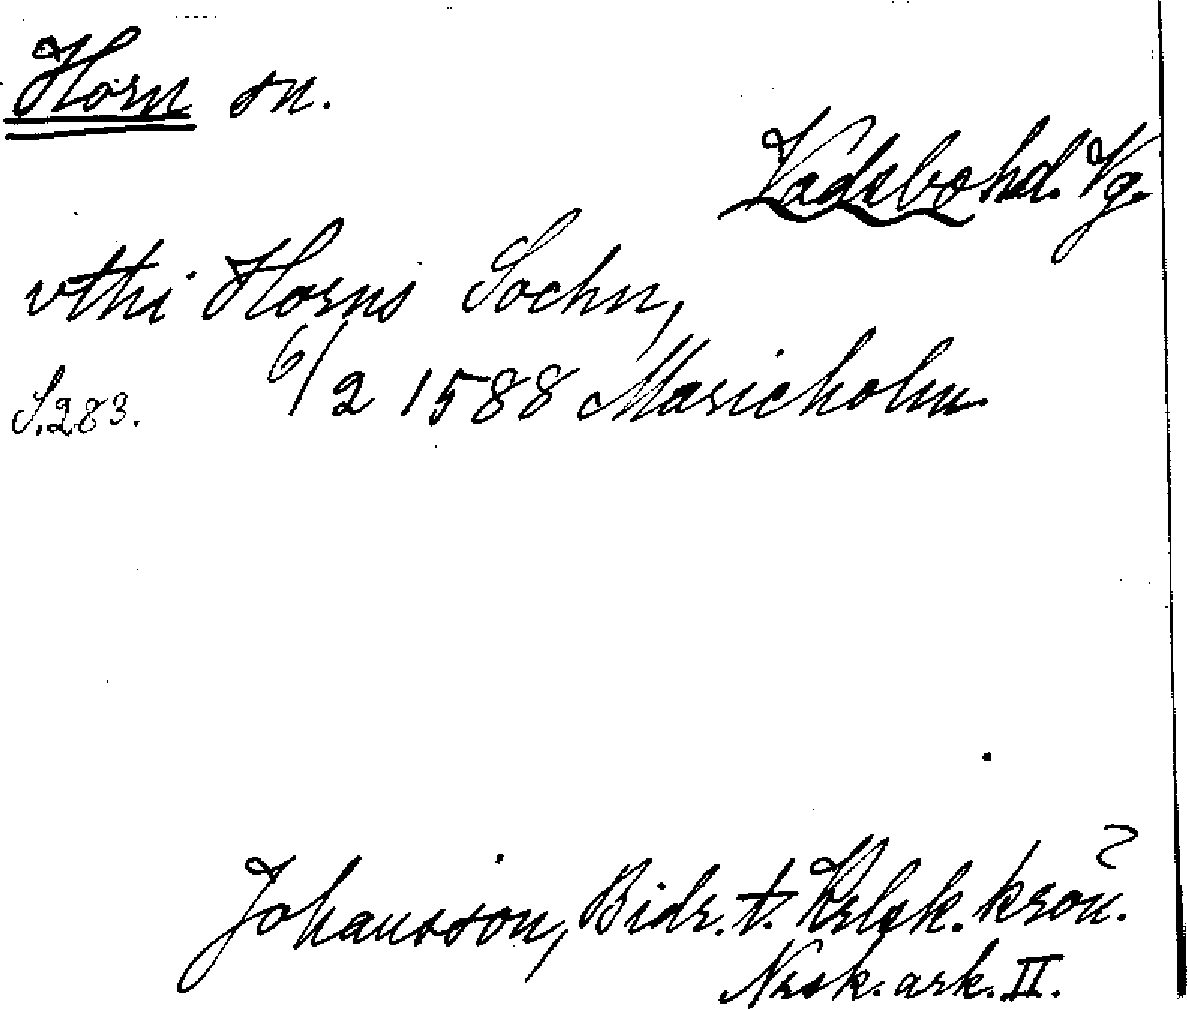 Horn sn.
Vadsbo hd. Vg.
vthi Horns Sochn,
S. 283. 6/2 1588 Marieholm
Johansson, Bidr. t.
Nrsk. ark. II.